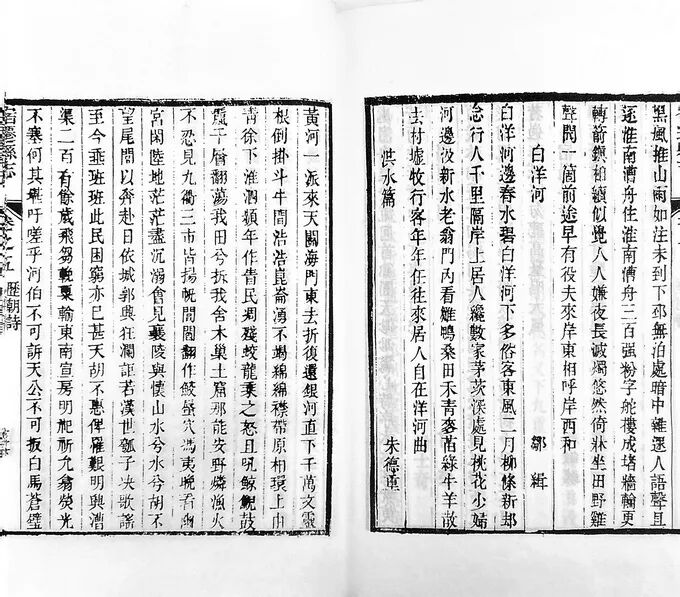 黑風推山雨如注未到下邳無泊處暗中雜遝人語聲且
逐淮南漕舟住淮南漕舟三百强粉字舵樓成堵牆輸更
轉箭鎖相續似覺人人嫌夜長滅燭悠然倚牀坐田野雞
聲聞一箇前途早有役夫來岸東相呼岸西和
白洋河 鄒緝
白洋河邊春水碧白洋河下多俗客東風二月柳條新却
念行人千里隔岸上居人纔數家茅茨深處見桃花少婦
河邊汲新水老翁門內看雛鴨桑田禾青麥苗綠牛羊散
去村墟牧行客年年任往來居人自在洋河曲
洪水篇 朱德重
黃河一派來天闕海門東去折復還銀河直下千萬丈靈
根倒掛斗牛間浩浩崑崙湧不竭綿綿襟帶原相環上由
青徐下淮泗頻年作眚民凋殘蛟龍乘之怒且吼鯨鯢鼓
霞千層翻蕩我田兮拆我舍木巢土窟那能安野燐漁火
不忍見九衢三市皆揚帆閭閻翻作鮫鼉穴馮夷晚看
宮闕陸地茫茫盡沉溺會見襄陵與懷山水兮水兮胡不
望尾閭以奔赴日依城郭與狂瀾詎若漢世瓠子决歌謠
至今垂班班此民困窮亦已甚天胡不惠俾罹艱明興漕
渠二百有餘歲飛芻輓粟輸東南宣房明祀祈九翁熒光
不塞何其舉吁嗟乎河伯不可訴天公不可扳白馬蒼璧
宿遷縣志
歷朝詩